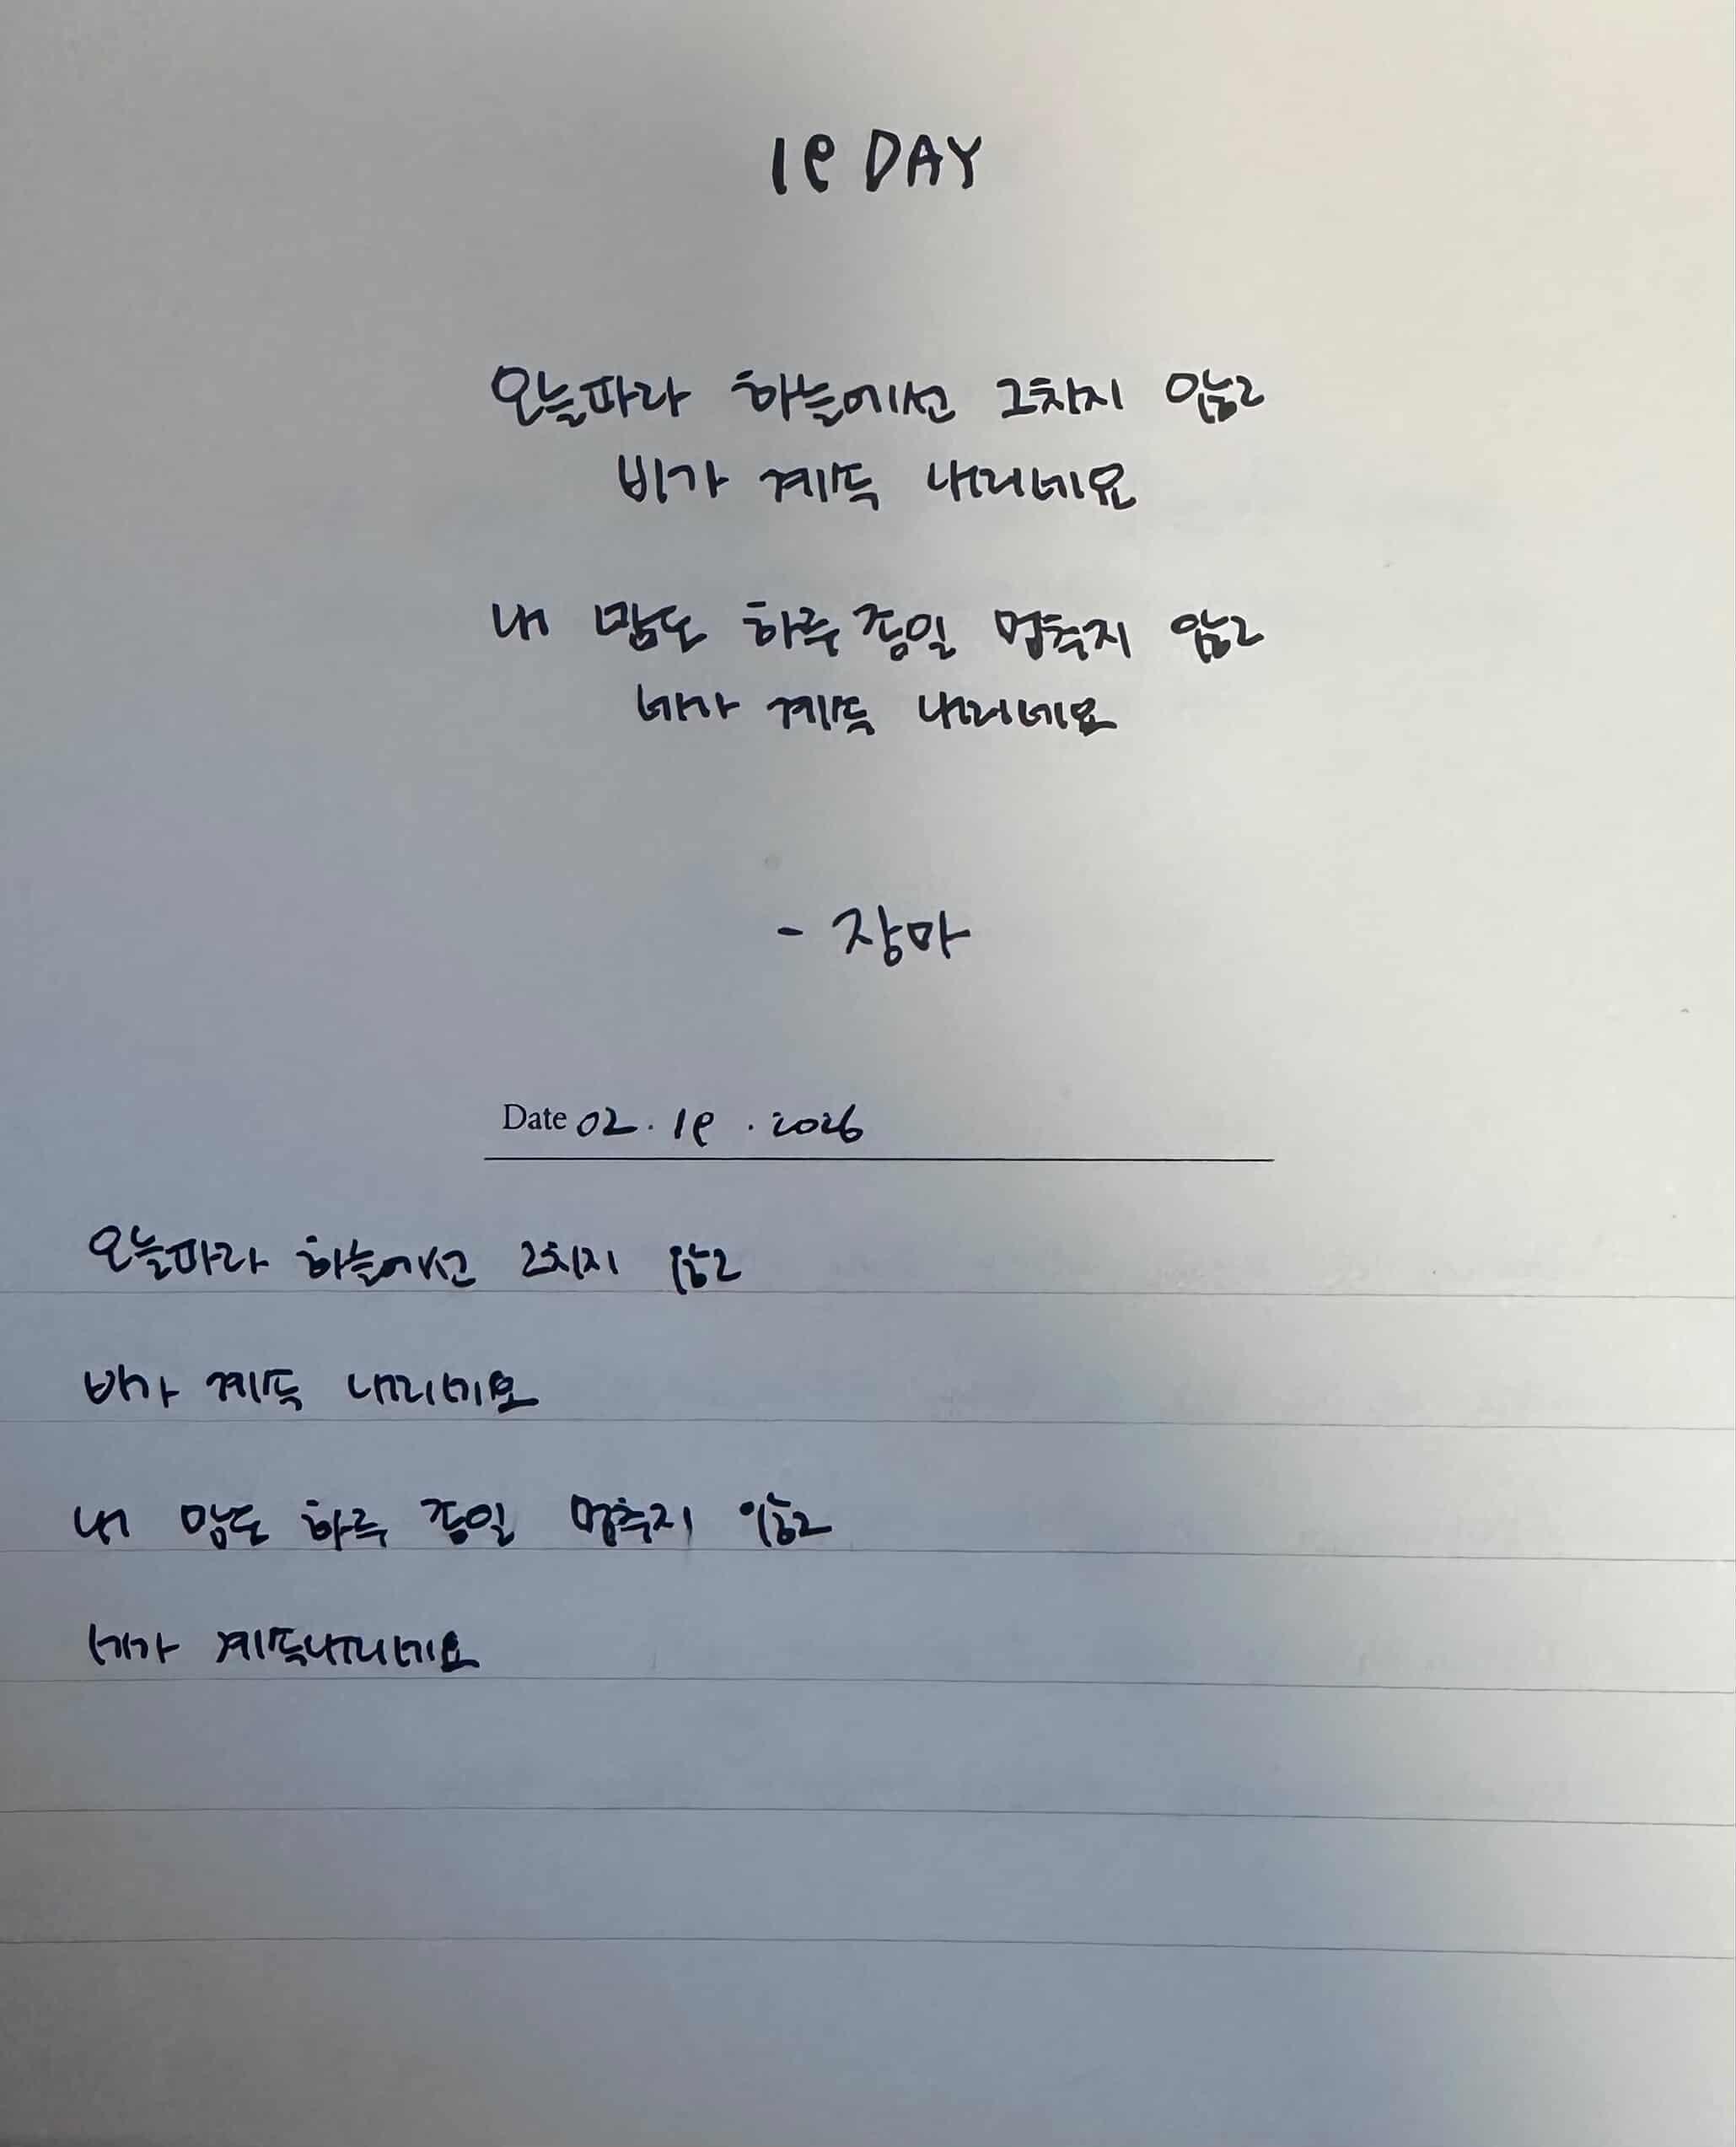 19 DAY
오늘따라 하늘에선 그치지 않고
비가 계속 내리네요
내 맘도 하루 종일 멈추지 않고
네가 계속 내리네요
- 장마
Date 02. 19. 2026
오늘따라 하늘에선 그치지 않고
비가 계속 내리네요
내 맘도 하루 종일 멈추지 않고
네가 계속내리네요